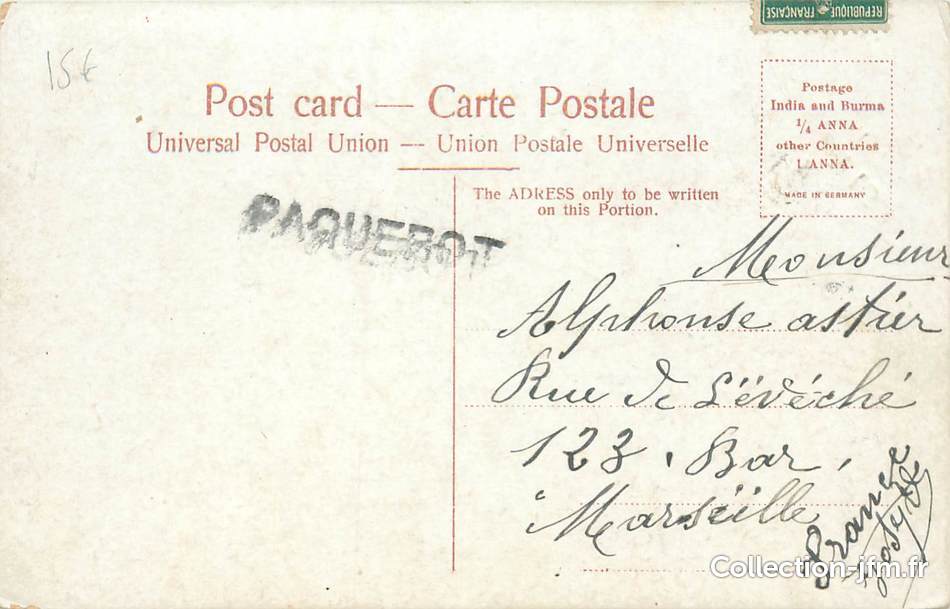 REPUBLIQUE FRANÇAISE
15€
Post card — Carte Postale
Universal Postal Union — Union Postale Universelle
Postage
India and Burma
1/4 ANNA
other Countries
1 ANNA.
MADE IN GERMANY
The ADRESS only to be written
on this Portion.
PAQUEBOT
Monsieur
Alphonse astier
Rue de L'évéché
123. Bar.
à Marseille
France
Collection-jfm.fr